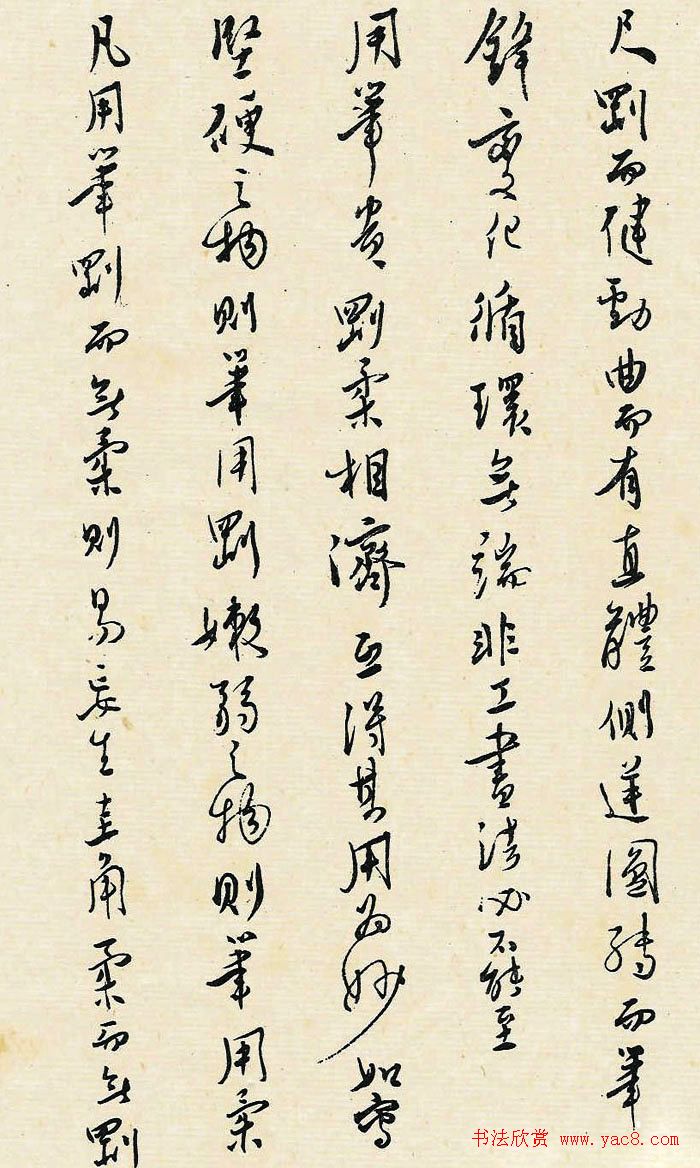 尺剛而健動曲而有直體側運圓轉而筆
鋒變化循環無端非工畫法必不能至
用筆貴剛柔相濟互得其用為妙如寫
堅硬之物則筆用剛嫩弱之物則筆用柔
凡用筆剛而無柔則易妄生圭角柔而無剛
书法欣赏 www.yac8.com